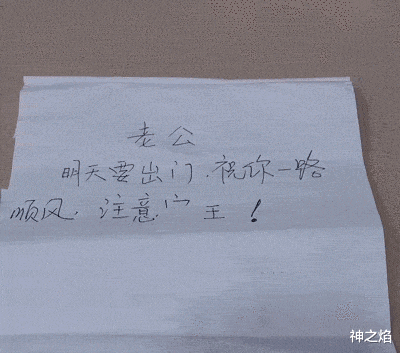 老公
明天要出门.祝你一路
顺风.注意宀王！
神之焰